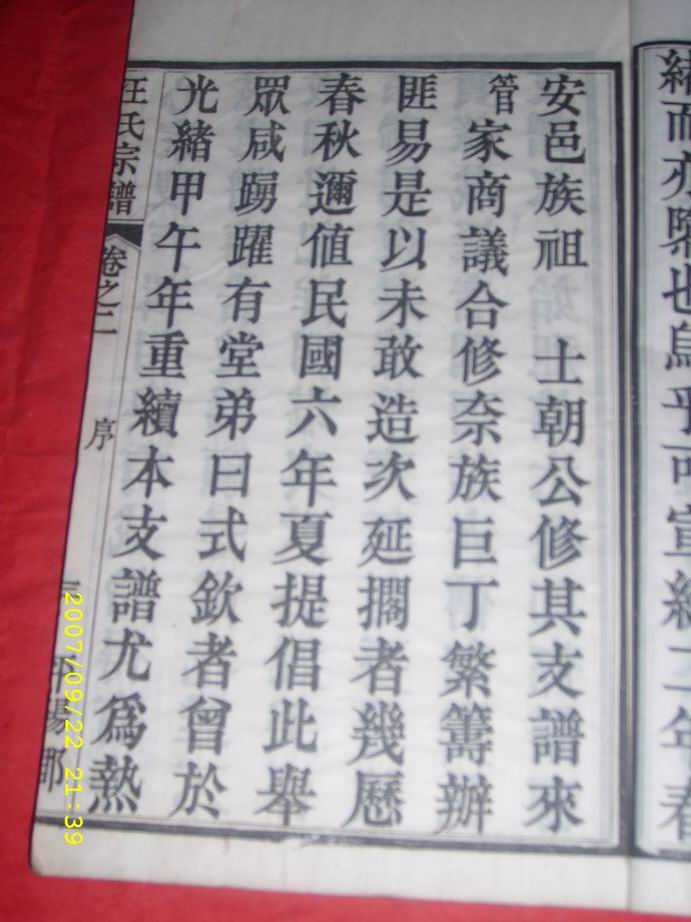 而亦也烏乎可宣統二年春
安邑族祖 士朝公修其支譜來
管家商議合修奈族巨丁繁籌辦
匪易是以未敢造次延擱者幾歷
春秋邇值民國六年夏提倡此舉
眾咸踴躍有堂弟曰式欽者曾於
光緒甲午年重續本支譜尤爲熱
汪氏宗譜 卷之二 序 平陽郡
2007/09/22 21:39